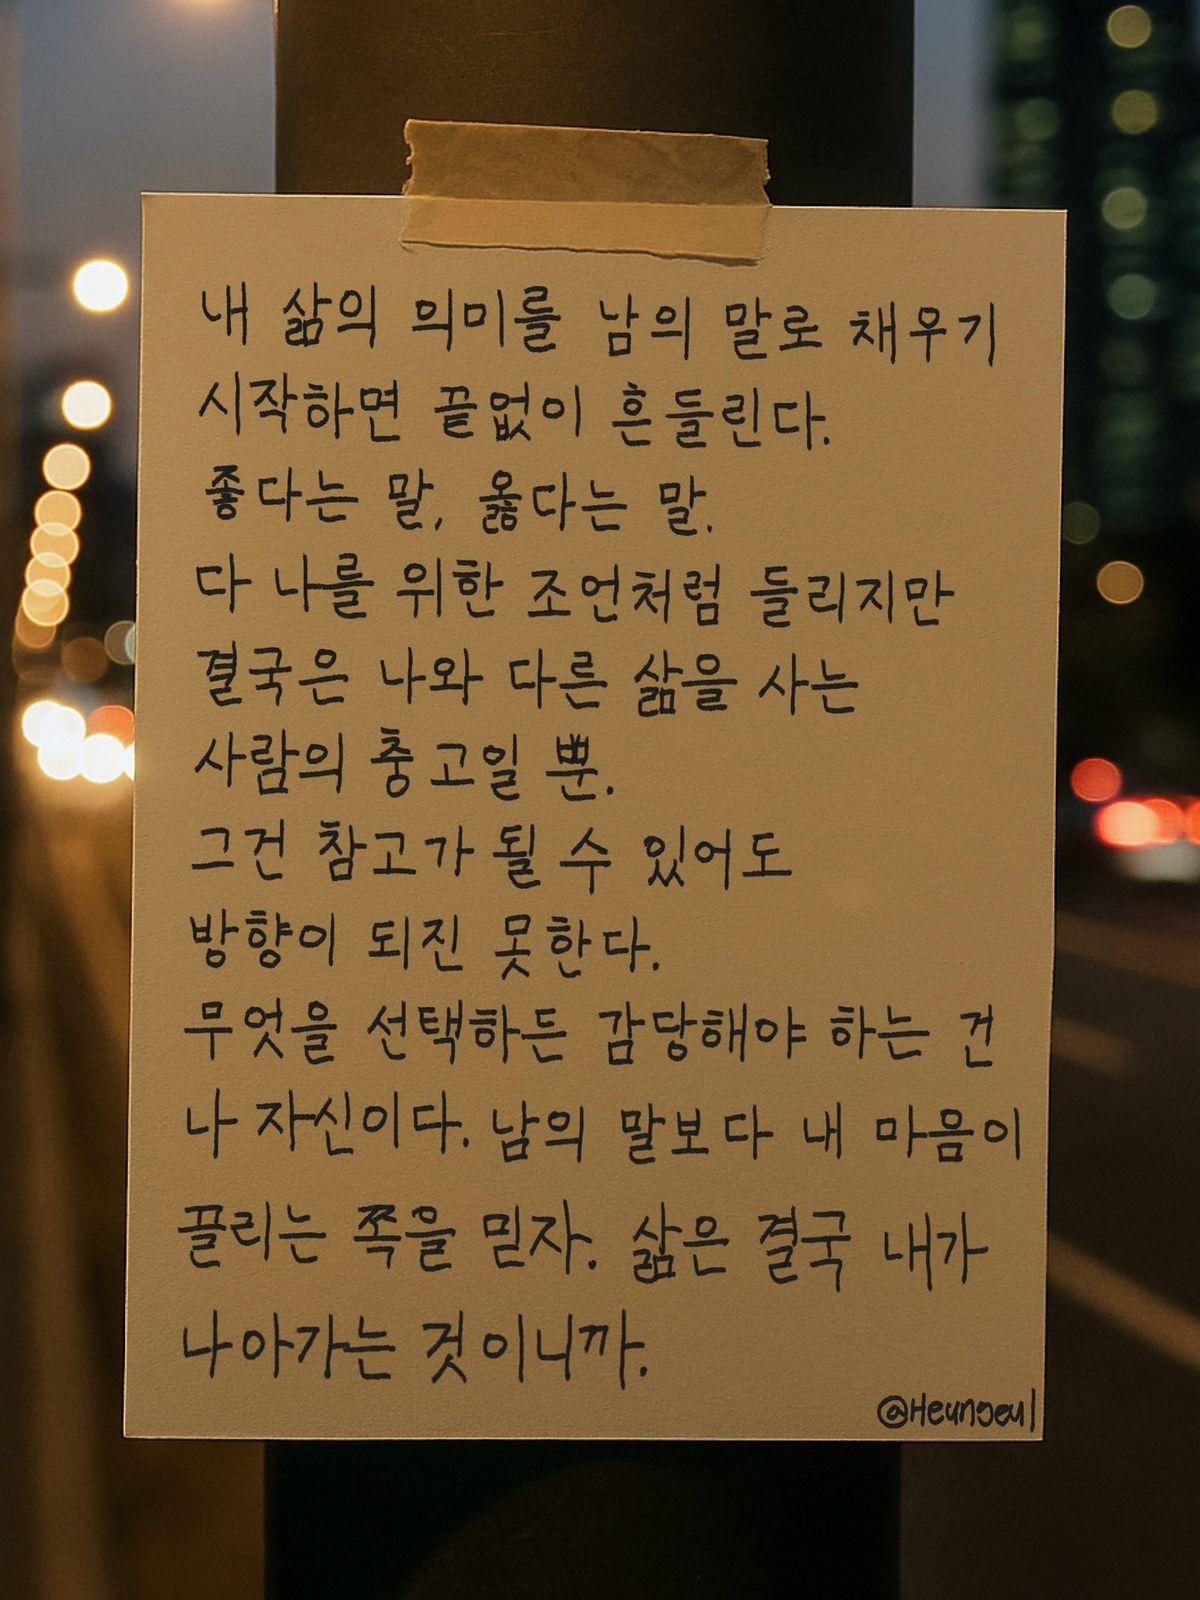 내 삶의 의미를 남의 말로 채우기
시작하면 끝없이 흔들린다.
좋다는 말, 옳다는 말.
다 나를 위한 조언처럼 들리지만
결국은 나와 다른 삶을 사는
사람의 충고일 뿐.
그건 참고가 될 수 있어도
방향이 되진 못한다.
무엇을 선택하든 감당해야 하는 건
나 자신이다. 남의 말보다 내 마음이
끌리는 쪽을 믿자. 삶은 결국 내가
나아가는 것이니까.
@Heungeul